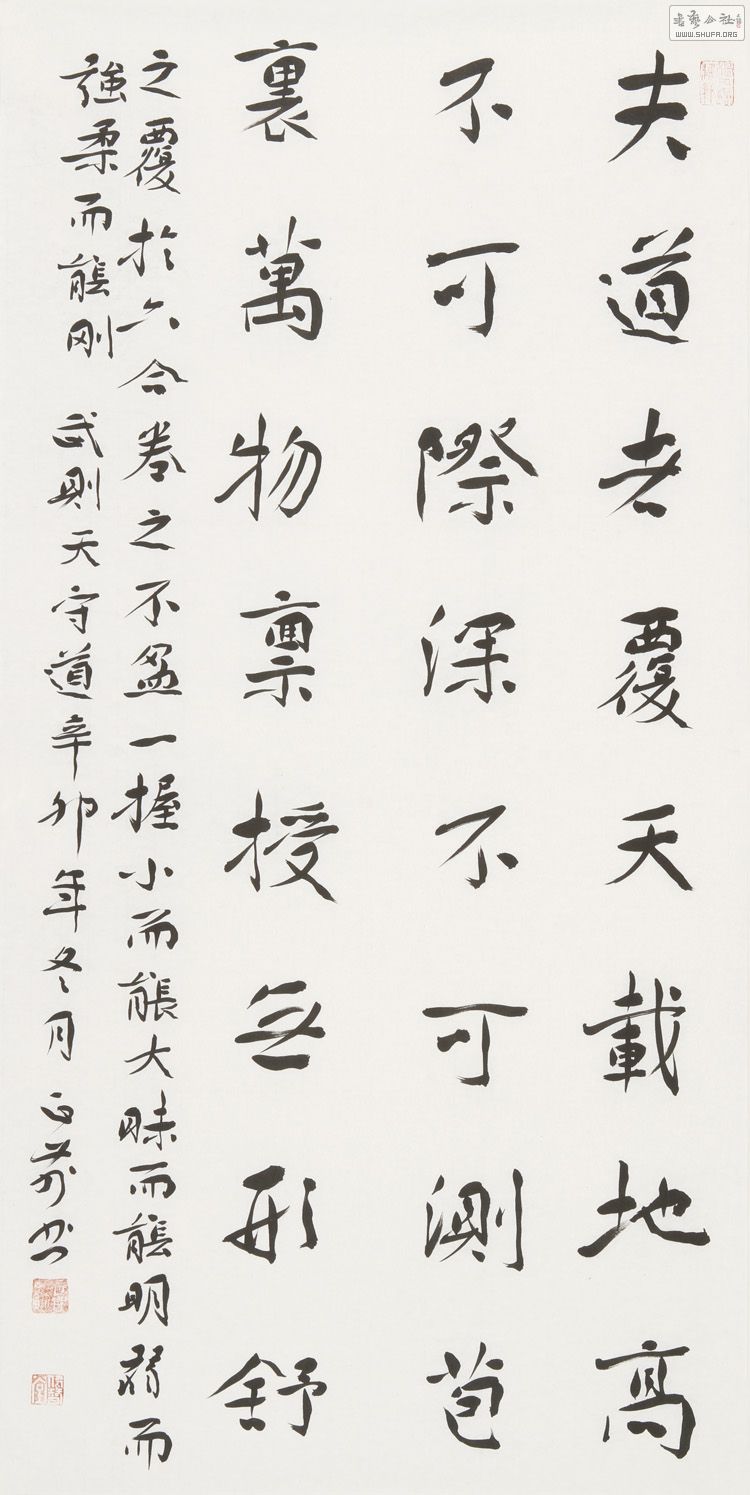 夫道者覆天載地高
不可際深不可測苞
裏萬物禀授无形舒
之覆於六合卷之不盈一握小而能大昧而能明弱而
強柔而能刚 武则天守道辛卯年冬月
書藝公社
WWW.SHUFA.ORG